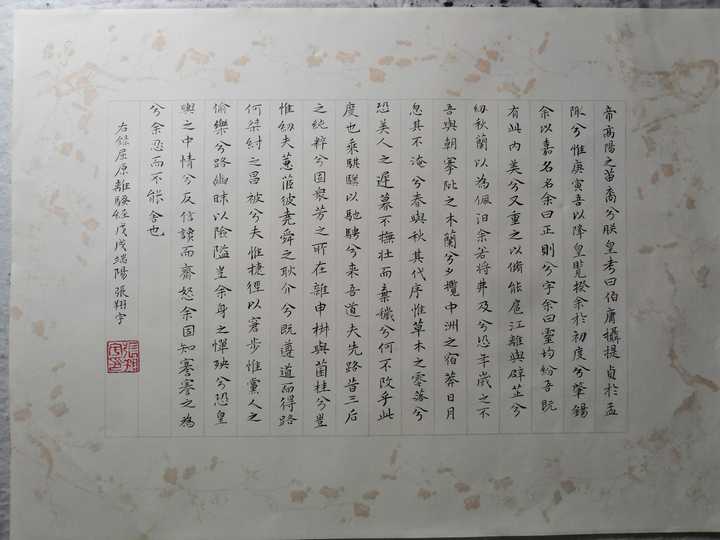 帝高陽之苗裔兮朕皇考曰伯庸攝提貞於孟
陬兮惟庚寅吾以降皇覽揆余於初度兮肇錫
余以嘉名名余曰正則兮字余曰靈均紛吾既
有此內美兮又重之以脩能扈江離與辟芷兮
紉秋蘭以為佩汩余若將弗及兮恐年歲之不
吾與朝搴阰之木蘭兮夕攬中洲之宿莽日月
忽其不淹兮春與秋其代序惟草木之零落兮
恐美人之遲暮不撫壯而棄穢兮何不改乎此
度也乘騏驥以馳騁兮來吾道夫先路昔三后
之純粹兮固衆芳之所在雜申椒與菌桂兮豈
惟紉夫蕙茝彼堯舜之耿介兮既遵道而得路
何桀紂之昌被兮夫惟捷徑以窘步惟黨人之
偷樂兮路幽昧以險隘豈余身之憚殃兮恐皇
輿之中情兮反信讒而齌怒余固知謇謇之為
兮余忍而不能舍也
右錄屈原離騷經戊戌端陽張翔宇